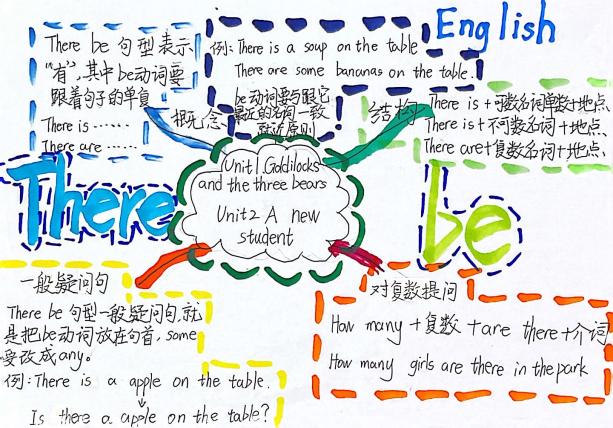 English
There be 句型表示
"有",其中be动词要
跟着句子的单复
There is ……
There are ……
概念
例: There is a soup on the table
There are some bananas on the table.
be动词要与跟它
最近的名词一致
就近原则
结构
There is+可数名词单数+地点
There is+不可数名词+地点.
There are+复数名词+地点.
Unit 1 Goldilocks
and the three bears
Unit2 A new
student
There
be
一般疑问句
There be 句型一般疑问句,就
是把be动词放在句首,some
要改成any。
例: There is a apple on the table.
Is there a apple on the table?
对复数提问
How many +复数 +are there+介词
How many girls are there in the park